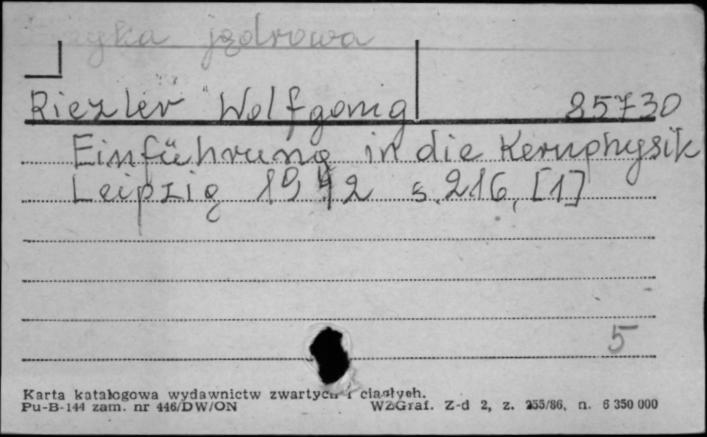 jądrowa
Riezler Wolfgang 85730
Einführung in die Kernphysik
Leipzig 1942 s. 216, [1]
5
Karta katalogowa wydawnictw zwartych i ciągłych.
Pu-B-144 zam. nr 446/DW/ON WZGraf. Z-d 2, z. 255/86, n. 6 350 000